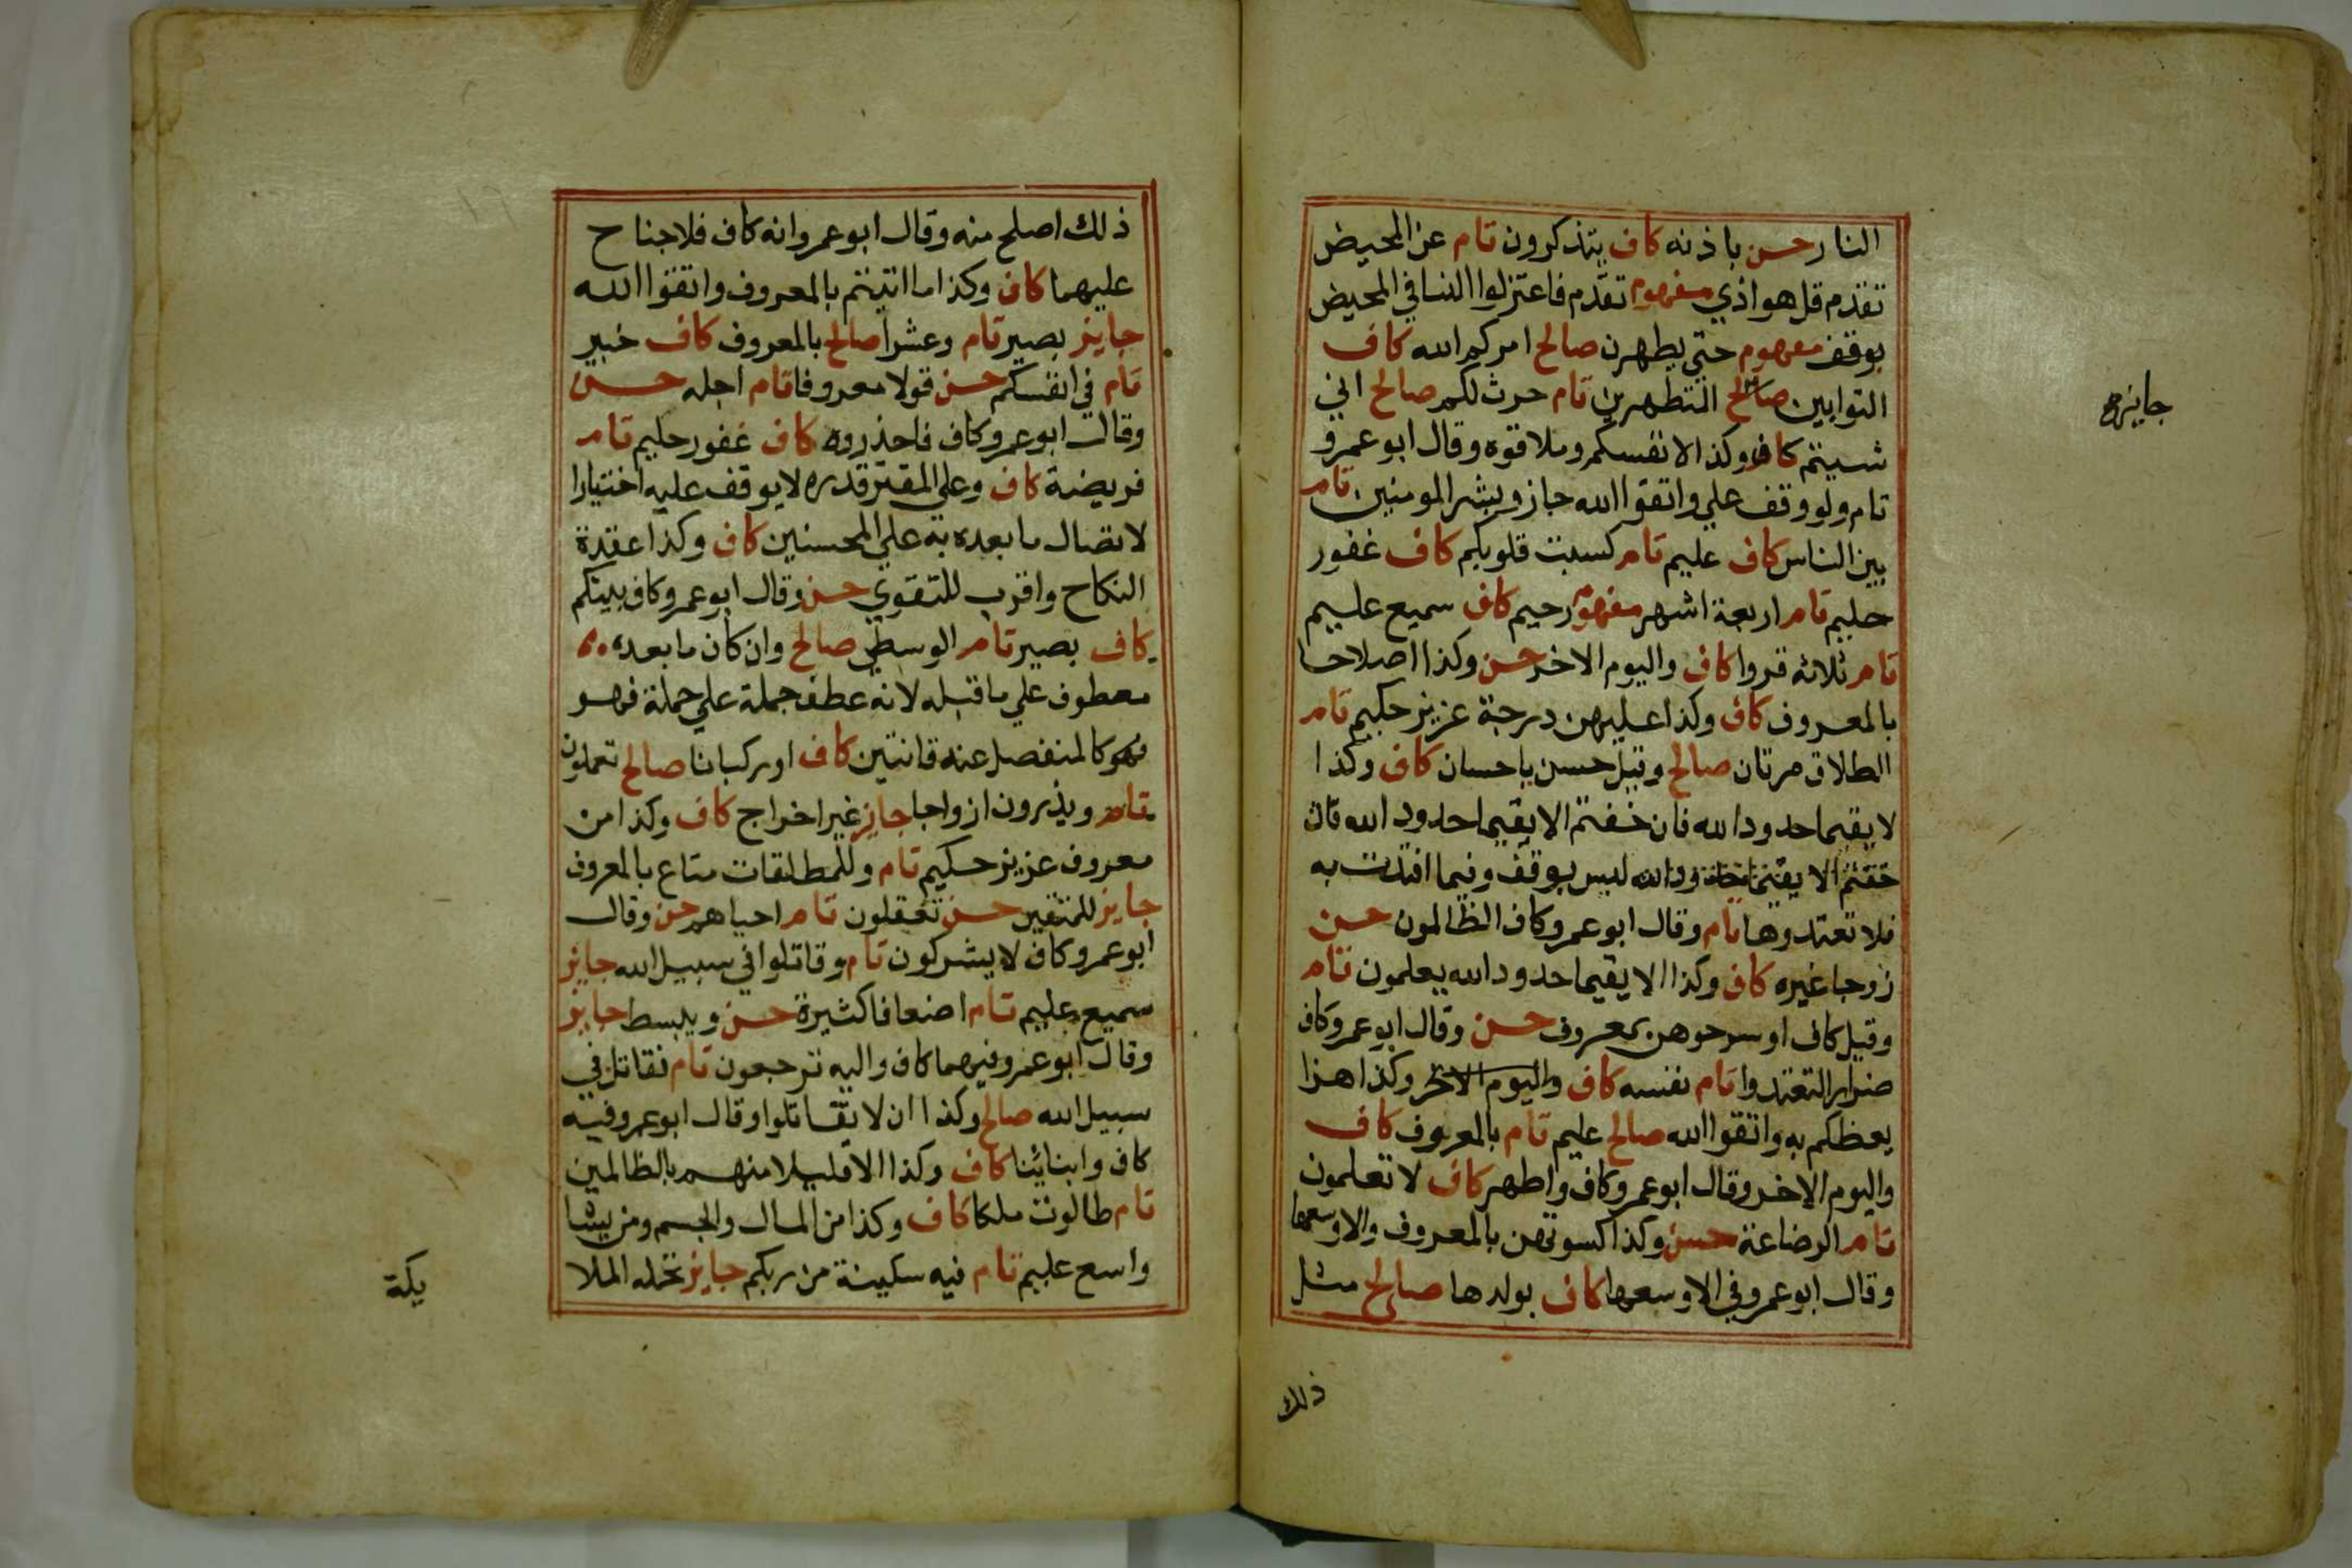 النار حسن باذنه كاف يتذكرون تام عن المحيض
تقدم قل هو اذي مفهوم تقدم فاعتزلوا النسا في المحيض
بوقف مفهوم حتي يطهرن صالح امركم الله كاف
التوابين صالح المتطهرين تام حرث لكم صالح اني
جايز صح
شييتم كاف وكذا لانفسكم وملاقوه وقال ابو عمرو
تام ولو وقف علي واتقوا الله جاز وبشر المومنين تام
بين الناس كاف عليم تام كسبت قلوبكم كاف غفور
حليم تام اربعة اشهر مفهوم رحيم كاف سميع عليم
تام ثلاثه قروا كاف واليوم الاخر حسن وكذا اصلاحا
بالمعروف كاف وكذا عليهن درجة عزيز حكيم تام
الطلاق مرتان صالح وقيل حسن باحسان كاف وكذا
لا يقيما حدود الله فان خفتم الا يقيما حدود الله فان
خفتم الا يقيما حدود الله ليس بوقف وفيما افتدت به
فلا تعتدوها تام وقال ابو عمرو كاف الظالمون حسن
زوجا غيره كاف وكذا الا يقيما حدود الله يعلمون تام
وقيل كاف او سرحوهن بمعروف حسن وقال ابو عمرو كاف
ضرارا لتعتدوا تام نفسه كاف واليوم الاخر وكذا هزا
يعظكم به واتقوا الله صالح عليم تام بالمعروف كاف
واليوم الاخر وقال ابو عمرو كاف واطهر كاف لا تعلمون
تام الرضاعة حسن وكذا كسوتهن بالمعروف والا وسعها
وقال ابو عمرو في الا وسعها كاف بولدها صالح مثل
ذلك
ذلك اصلح منه وقال ابو عمرو انه كاف فلا جناح
عليهما كاف وكذا ما اتيتم بالمعروف واتقوا الله
جايز بصير تام وعشرا صالح بالمعروف كاف خبير
تام في انفسكم حسن قولا معروفا تام اجله حسن
وقال ابو عمرو كاف فاحذروه كاف غفور حليم تام
فريضة كاف وعلي المقتر قدره لا يوقف عليه اختيارا
لاتصال ما بعده به علي المحسنين كاف وكذا عقدة
النكاح واقرب للتقوي حسن وقال ابو عمرو كاف بينكم
كاف بصير تام الوسطي صالح وان كان ما بعده
معطوف علي ما قبله لانه عطف جملة علي جملة فهو
فهو كالمنفصل عنه قانتين كاف او ركبانا صالح تعملون
تام ويذرون ازواجا جايز غير اخراج كاف وكذا من
معروف عزيز حكيم تام وللمطلقات متاع بالمعروف
جايز للمتقين حسن تعقلون تام احياهم حسن وقال
ابو عمرو كاف لا يشركون تام وقاتلوا في سبيل الله جايز
سميع عليم تام اضعافا كثيرة حسن ويبسط جايز
وقال ابو عمرو فيهما كاف واليه ترجعون تام نقاتل في
سبيل الله صالح وكذا ان لا تقاتلوا وقال ابو عمرو فيه
كاف وابنائنا كاف وكذا الا قليلا منهم بالظالمين
تام طالوت ملكا كاف وكذا من المال والجسم ومن يشا
واسع عليم تام فيه سكينة من ربكم جايز تحمله الملا
يكة